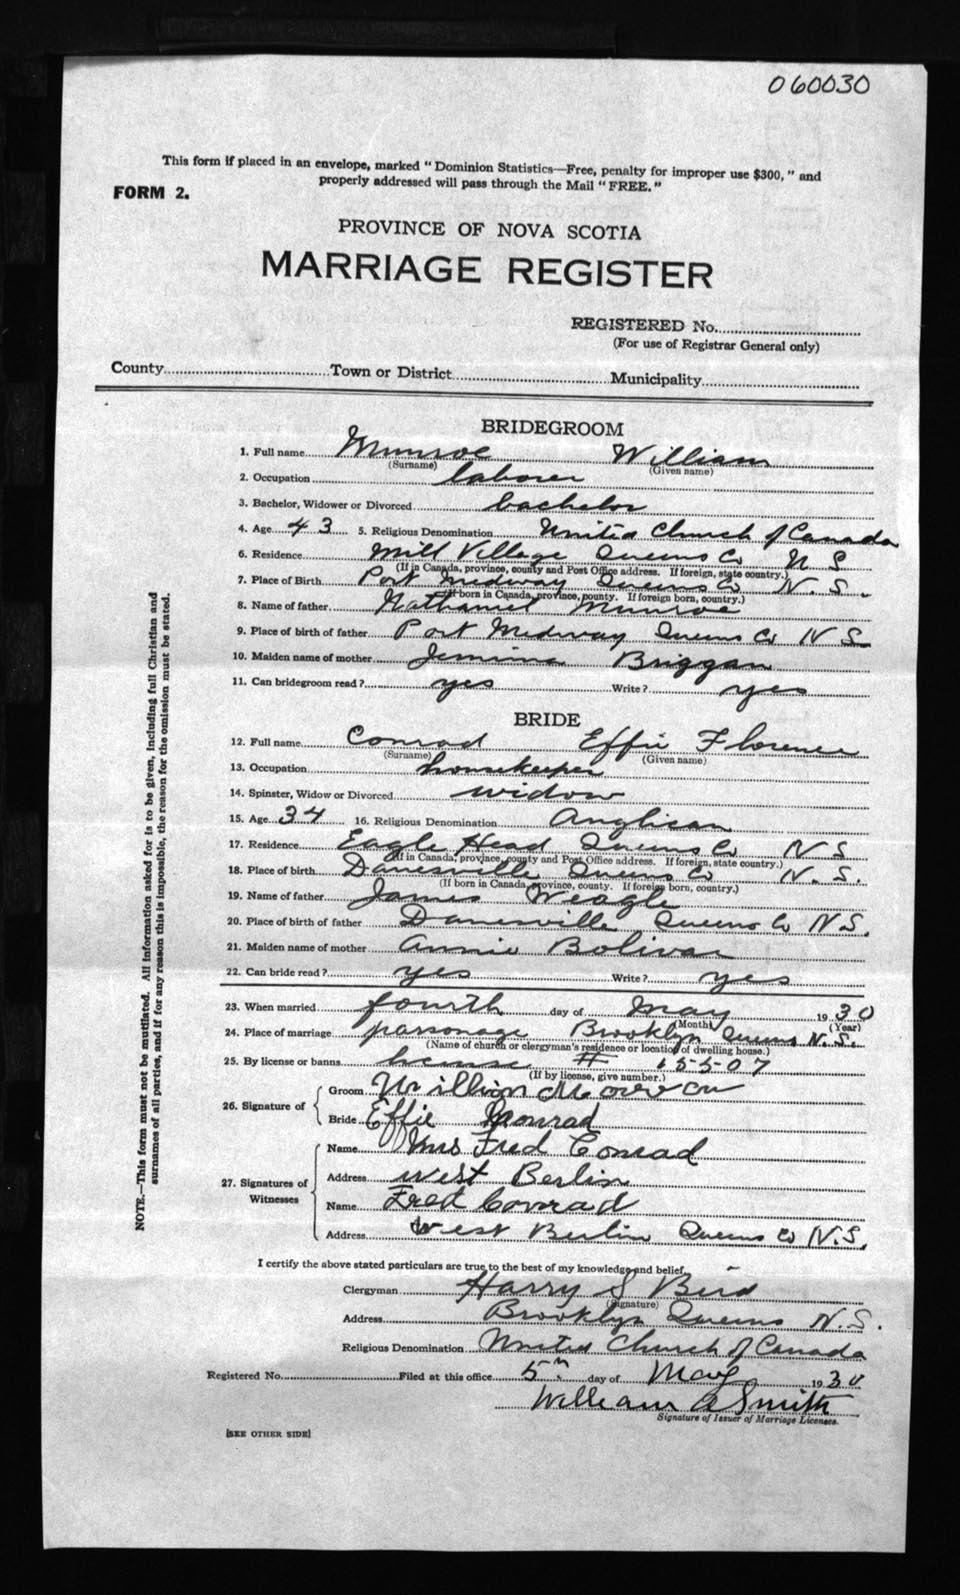 060030
This form if placed in an envelope, marked "Dominion Statistics—Free, penalty for improper use $300," and
properly addressed will pass through the Mail "FREE."
FORM 2.
PROVINCE OF NOVA SCOTIA
MARRIAGE REGISTER
REGISTERED No.
(For use of Registrar General only)
County Town or District Municipality
BRIDEGROOM
1. Full name Munroe William
(Surname) (Given name)
2. Occupation laborer
3. Bachelor, Widower or Divorced bachelor
4. Age 43 5. Religious Denomination United Church of Canada
6. Residence Mill Village Queens Co N S
(If in Canada, province, county and Post Office address. If foreign, state country.)
7. Place of Birth Port Medway Queens Co N. S.
(If born in Canada, province, county. If foreign born, country.)
8. Name of father Nathaniel Munroe
9. Place of birth of father Port Medway Queens Co N S
10. Maiden name of mother Jemima Briggan
11. Can bridegroom read? yes Write? yes
BRIDE
12. Full name Conrad Effie Florence
(Surname) (Given name)
13. Occupation housekeeper
14. Spinster, Widow or Divorced widow
15. Age 34 16. Religious Denomination Anglican
17. Residence Eagle Head Queens Co N S
(If in Canada, province, county and Post Office address. If foreign, state country.)
18. Place of birth Danesville Queens Co N. S.
(If born in Canada, province, county. If foreign born, country.)
19. Name of father James Weagle
20. Place of birth of father Danesville Queens Co N S.
21. Maiden name of mother Annie Bolivar
22. Can bride read? yes Write? yes
23. When married fourth day of May 1930
(Month) (Year)
24. Place of marriage parsonage Brooklyn Queens N. S.
(Name of church or clergyman's residence or location of dwelling house.)
25. By license or banns license # 15507
(If by license, give number.)
26. Signature of Groom William
Bride Effie Conrad
27. Signatures of Witnesses
Name Mrs Fred Conrad
Address West Berlin
Name Fred Conrad
Address West Berlin Queens Co N.S.
I certify the above stated particulars are true to the best of my knowledge and belief,
Clergyman Harry S Bird
(Signature)
Address Brooklyn Queens N. S.
Religious Denomination United Church of Canada
Registered No. Filed at this office 5th day of May 1930
William A Smith
Signature of Issuer of Marriage Licenses.
[SEE OTHER SIDE]
NOTE.—This form must not be mutilated. All information asked for is to be given, including full Christian and
surnames of all parties, and if for any reason this is impossible, the reason for the omission must be stated.